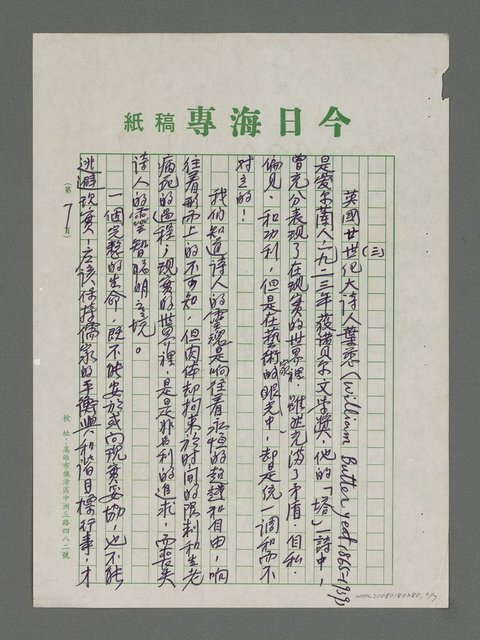 今日海專稿紙
(三)
英國廿世紀大詩人葉慈(William Butter yeat 1865-1939)
是爱尔蘭人,一九二三年获诺贝尔文学獎,他的「塔」一詩中,
曾充分表現了在現实的世界裡,雖然充满了矛盾、自私、
偏見、和功利,但是在藝術家的眼光中,却是统一调和而不
对立的!
我们知道詩人的靈魂是响往着永恒的超越和自由,响
往着形而上的不可知,但肉体却拘束於时间的限制和生老
病死的过程,现实的世界裡,是是非非名利的追求,而喪失
詩人的靈智聪明
一個完整的生命,既不能安於或向现實妥协,也不能
逃避现實!应该保持儒家的平衡與和諧目標行事,才
(第7頁)
校址:高雄市旗津區中洲三路四八二號